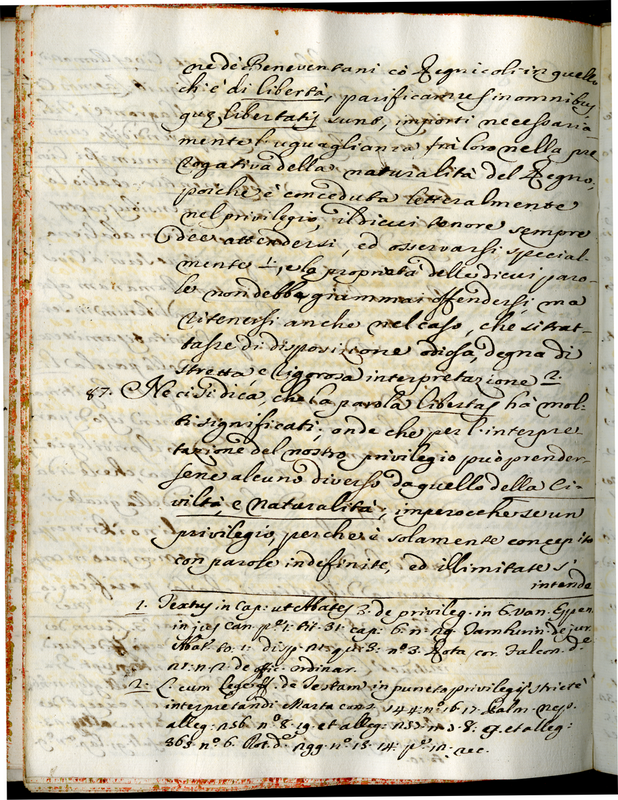 ne de Beneventani co Regnicoli in quello
ch'è di libertà, parificamus in omnibus
quę libertatis sunt, importi necessaria-
mente l'uguaglianza frà loro nella pre
rogativa della naturalità del Regno;
poiche è conceduta letteralmente
nel privilegio, il di cui tenore sempre
dee attendersi, ed osservarsi special-
mente 1., e la proprietà delle di cui paro-
le non debbe giammai offendersi, ma
ritenersi anche nel caso, che si trat-
tasse di disposizione odiosa, degna di
stretta e rigorosa interpretazione 2.
87. Ne ci si dica, che la parola libertas hà mol-
ti significati, onde che per l'interpre
tazione del nostro privilegio può prender-
sene alcuno diverso da quello della Ci-
viltà, e naturalità; imperocche se un
privilegio, perche è solamente concepito
con parole indefinite, ed illimitate s'
intende
1. Textus in Cap: ut Abates 3. de privileg. in 6. Van. Espen
in jus Can. p. 1. tit. 31. cap: 6. n. 29. Tamburin. de jur.
Abat. to. 1. disp. 15. 3. Rota cor. Falcon. de
n. 2. de offic. ordinar.
2. L. cum de Testam in puncto privilegij stricte
interpretandi Marta cons. 144. n. 16. 17. Palm. Nep.
alleg: 156. n. 8. 19. et alleg: et alleg:
363. n. 6. Rot. d. 199. n. 13. 14. p. rec.